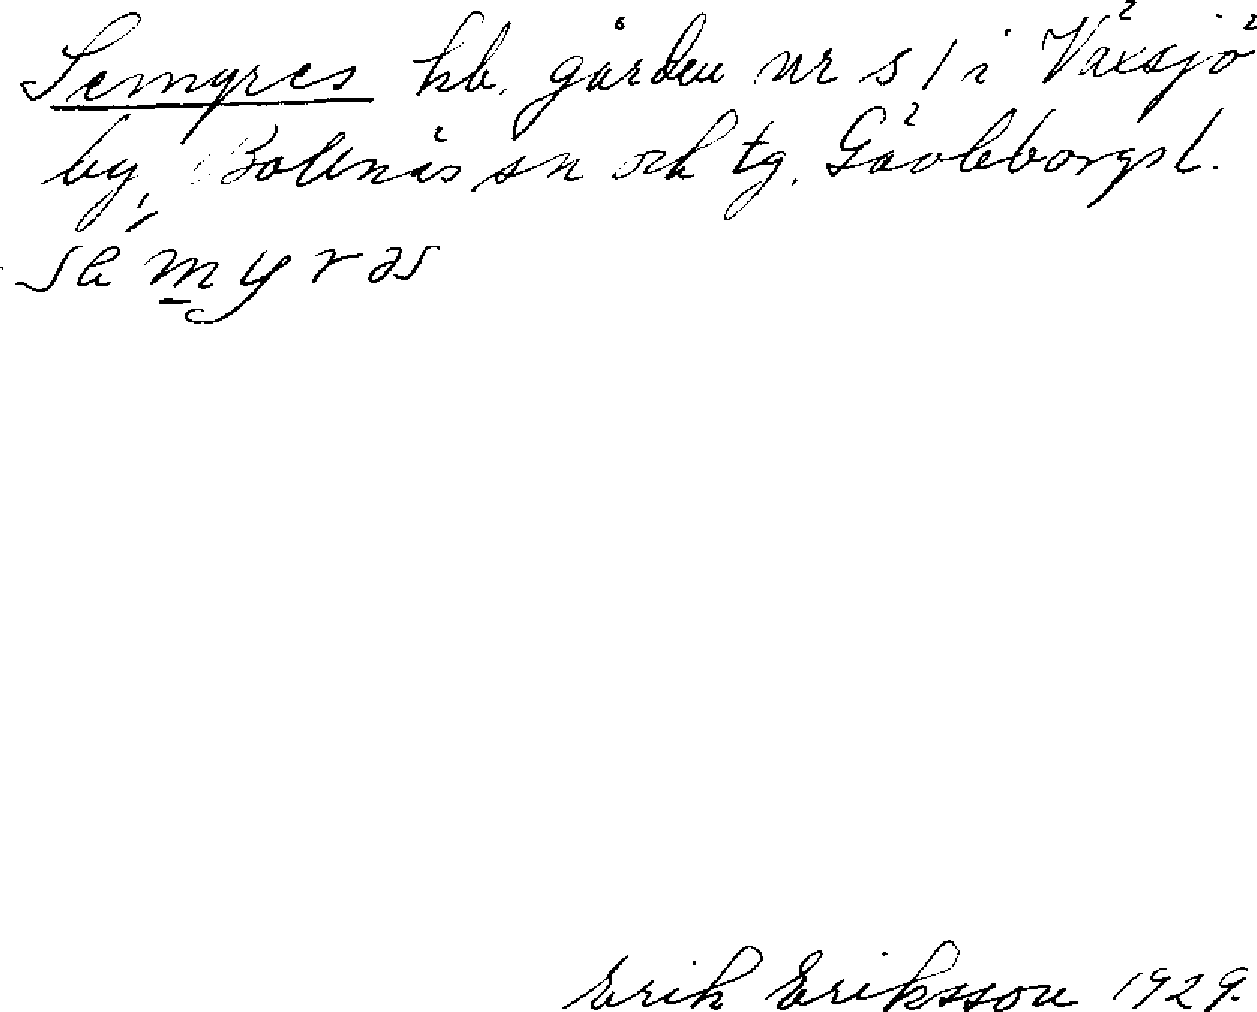 Semyres hb. gården nr 51 i Växsjö
by, Bollnäs sn och tg. Gävleborgs l.
Erik Eriksson 1929.